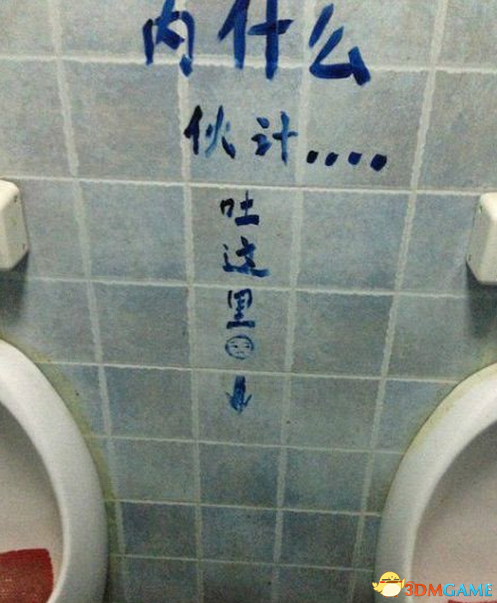 内什么
伙计....
吐
这
里
3DMGAME